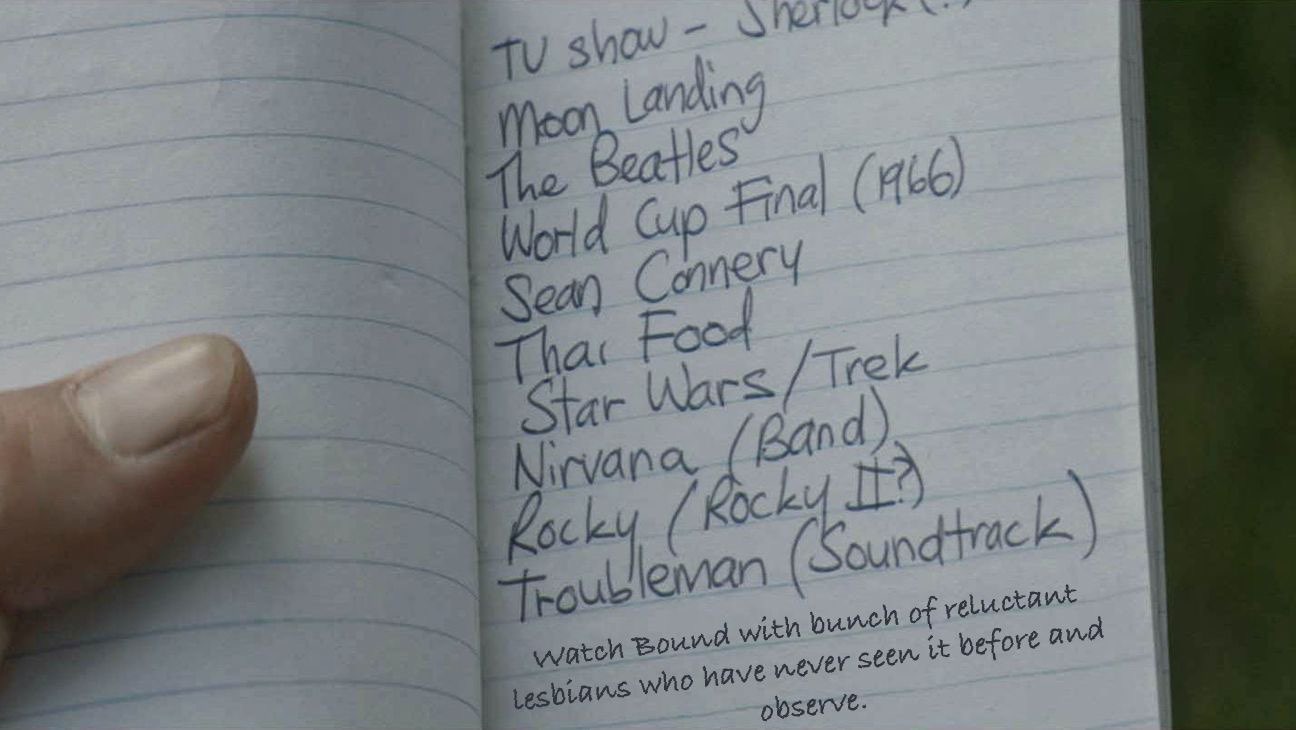 TV show - Sherlock (?)
Moon Landing
The Beatles
World Cup Final (1966)
Sean Connery
Thai Food
Star Wars/Trek
Nirvana (Band)
Rocky (Rocky II?)
Troubleman (Soundtrack)
Watch Bound with bunch of reluctant
lesbians who have never seen it before and
observe.